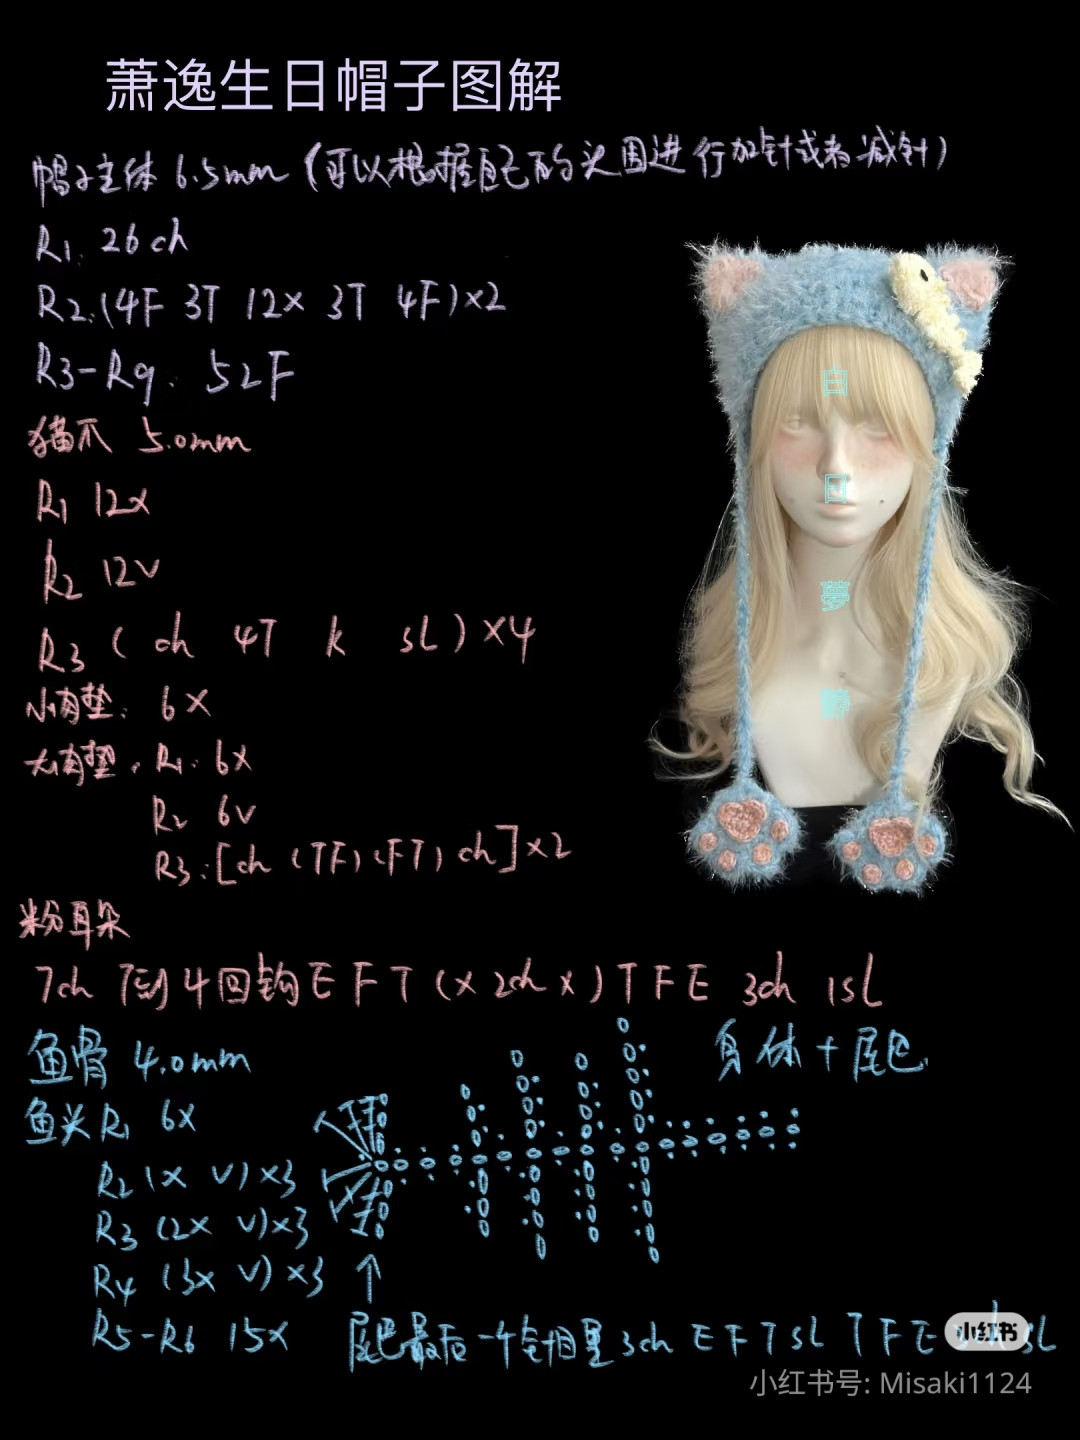 萧逸生日帽子图解
帽子主体 6.5mm (可以根据自己的头围进行加针或者减针)
R1. 26ch
R2:(4F 3T 12X 3T 4F)×2
R3-R9. 52F
猫爪 5.0mm
R1 12X
R2 12V
R3 ( ch 4T k sL)×4
小肉垫: 6X
大肉垫. R1. 6X
R2 6V
R3:[ch (TF)(FT) ch]×2
粉耳朵
7ch 到4回钩 E F T (X 2ch X) T F E 3ch 1sL
鱼骨 4.0mm
身体+尾巴
鱼头 R1 6X
R2 (X V)×3
R3 (2X V)×3
R4 (3X V)×3
R5-R6 15X
尾巴最后一个针目里 3ch E F T sL T F E sL
白日夢
小红书
小红书号: Misaki1124